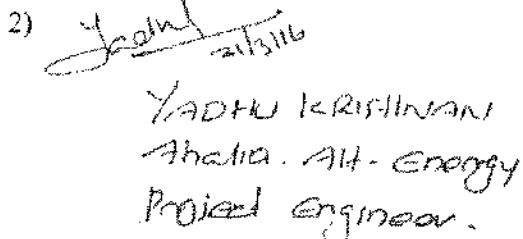 2) Yadhu
21/3/16
YADHU KRISHNAN
Ahalia. Alt. Energy
Project Engineer.